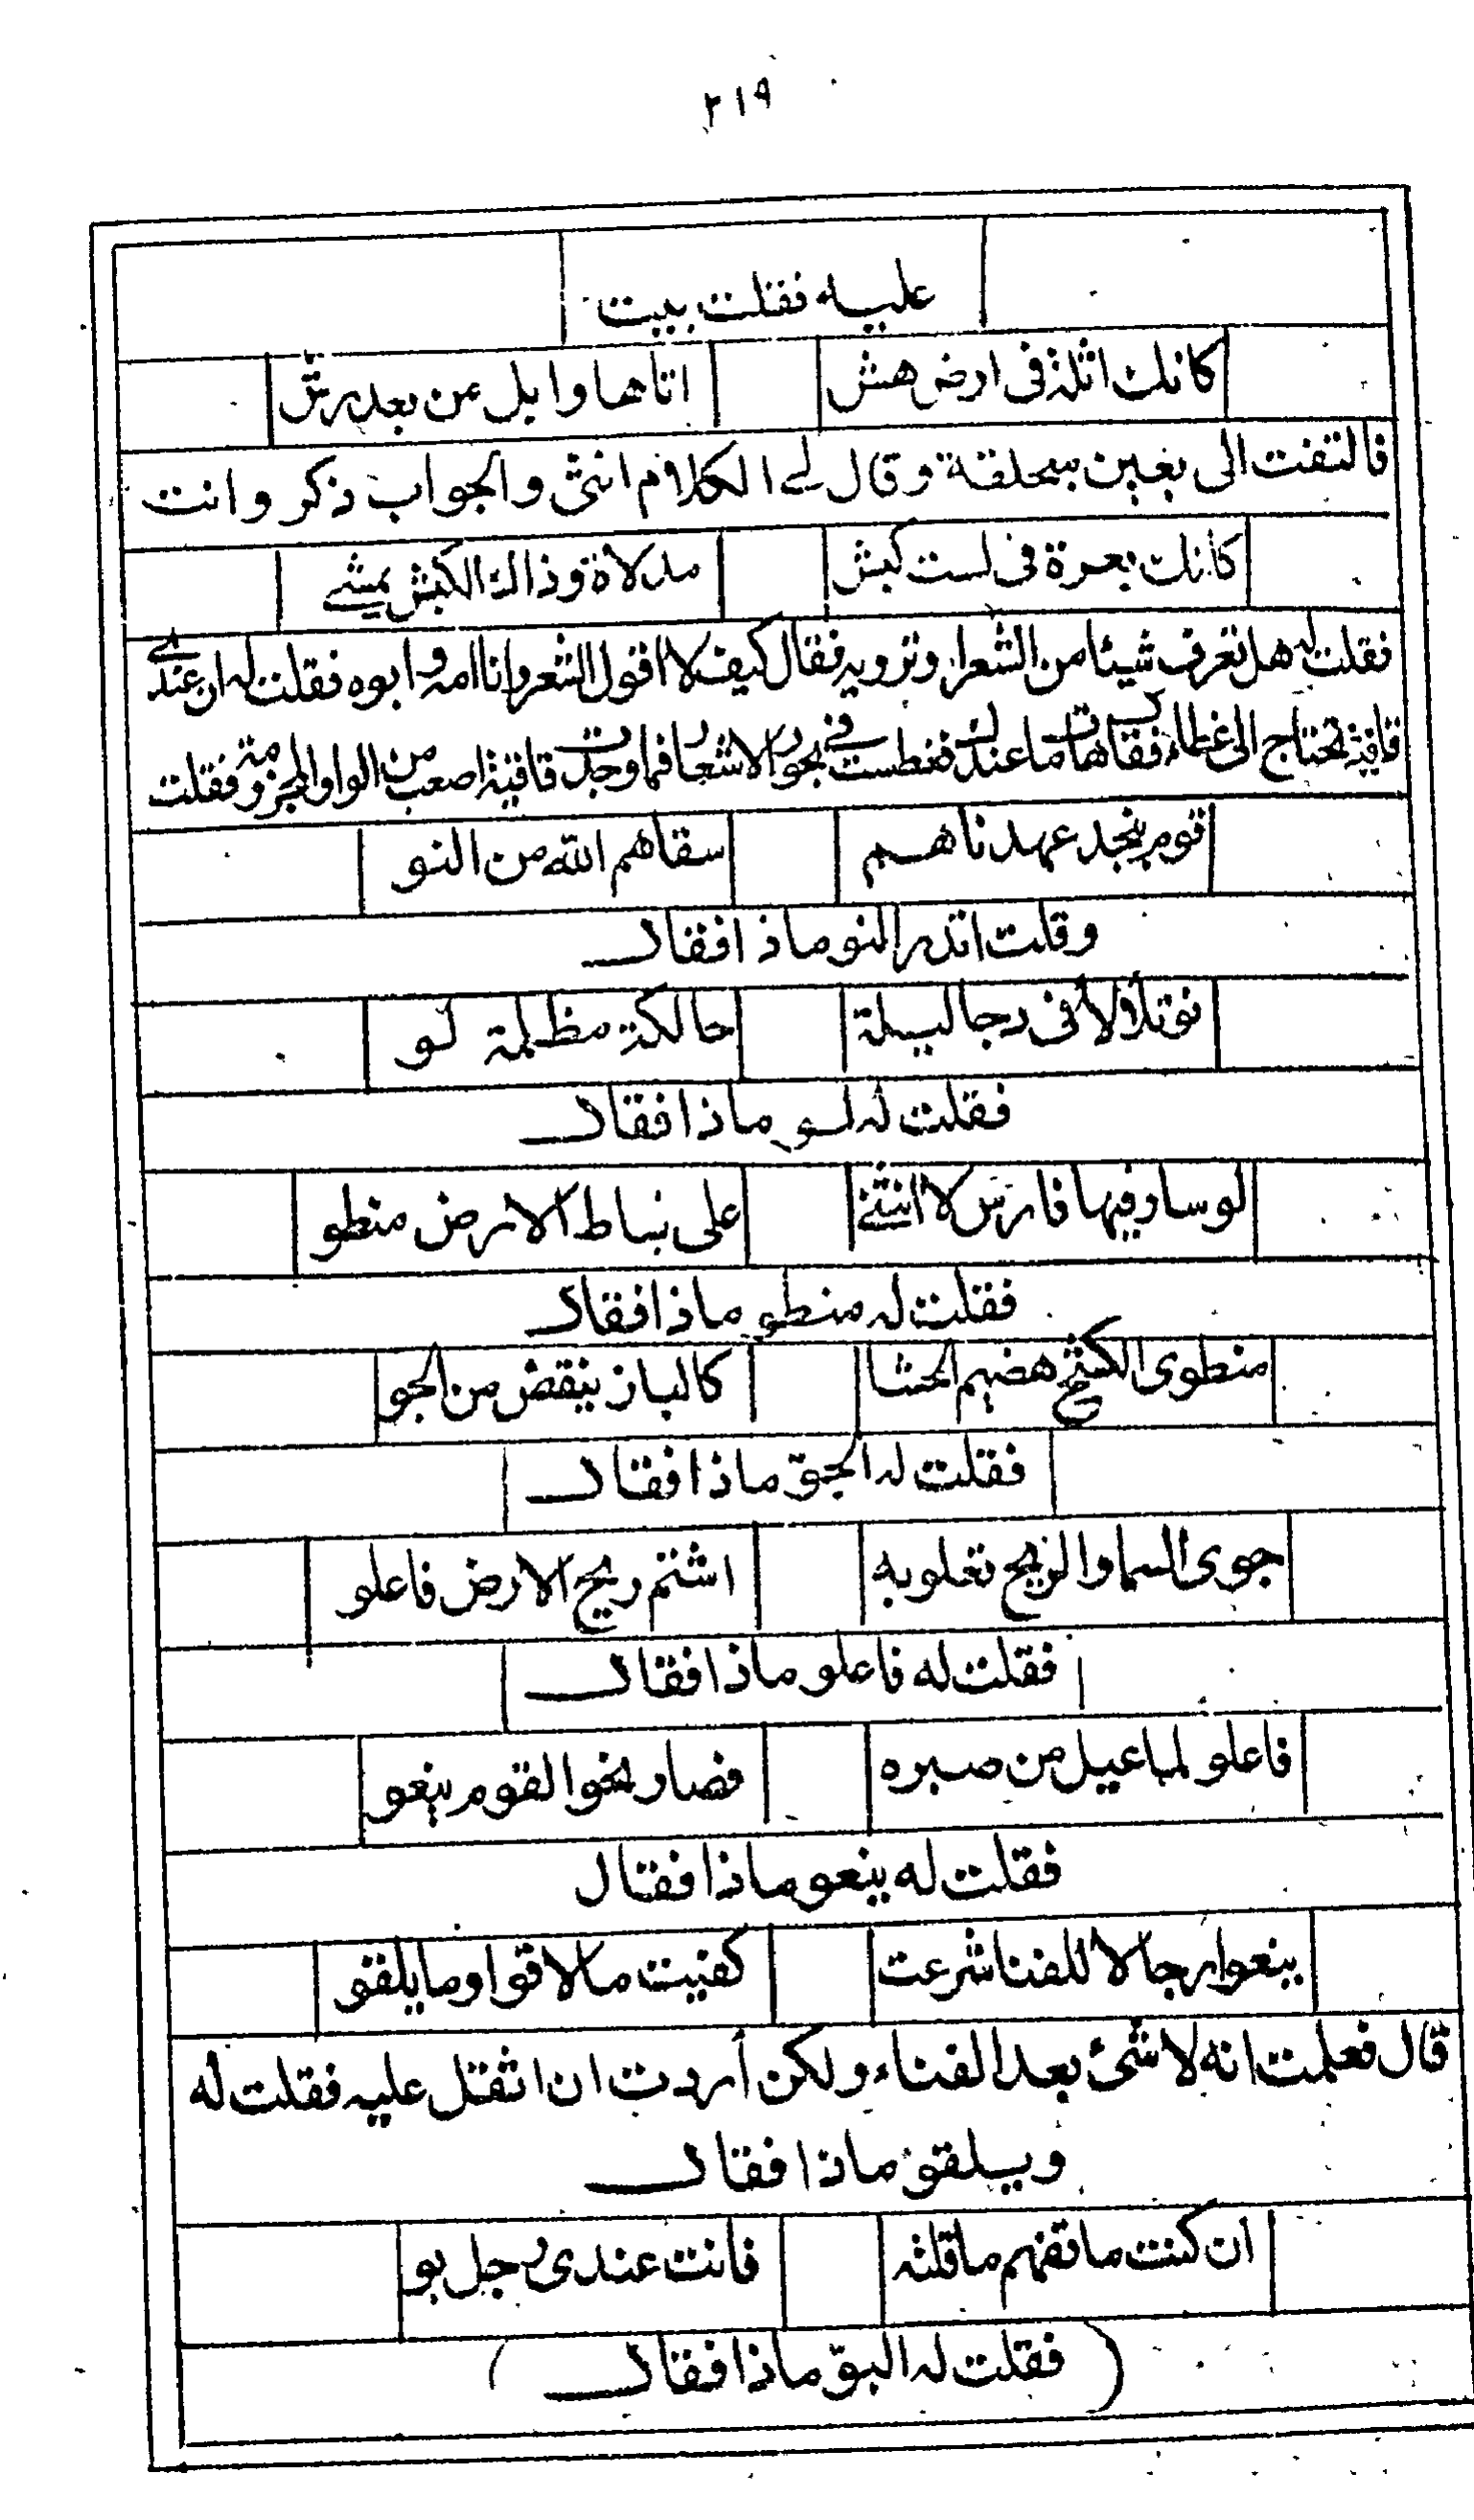 ٢١٩
عليه فقلت بيت
كانك اثلة فى ارض هش اتاها وابل من بعد رش
فالتفت الى بعين محلقة وقال لے الكلام انثى والجواب ذكر وانت
كانك بعرة فى است كبش مدلاة وذاك الكبش يمشے
فقلت له هل تعرف شيئا من الشعر او ترويه فقال كيف لا اقول الشعر وانا امه وابوه فقلت له ان عندى
قافية تحتاج الى غطاء فقال هات ما عندك فغطست فى بحور الاشعار فما وجدت قافية اصعب من الواو المجزومة فقلت
قوم بنجد عهدناهم سقاهم الله من النو
وقلت اتدر النو ماذا فقال
نو تلألأ فى دجا ليلة حالكة مظلمة لو
فقلت له لو ماذا فقال
لو سار فيها فارس لا انثنے على بساط الارض منطو
فقلت له منطو ماذا فقال
منطوى الكشح هضيم الحشا كالباز ينقض من الجو
فقلت له الجو ماذا فقال
جوى السما والريح تعلو به اشتم ريح الارض فاعلو
فقلت له فاعلو ماذا فقال
فاعلو لما عيل من صبره فصار نحو القوم ينعو
فقلت له ينعو ماذا فقال
ينعوا رجالا للفنا شرعت كفيت ما لاقوا وما يلقو
قال فعلمت انه لا شئ بعد الفناء ولكن أردت ان اثقل عليه فقلت له
ويلقو ماذا فقال
ان كنت ما تفهم ما قلته فانت عندى رجل بو
(فقلت له البو ماذا فقال)